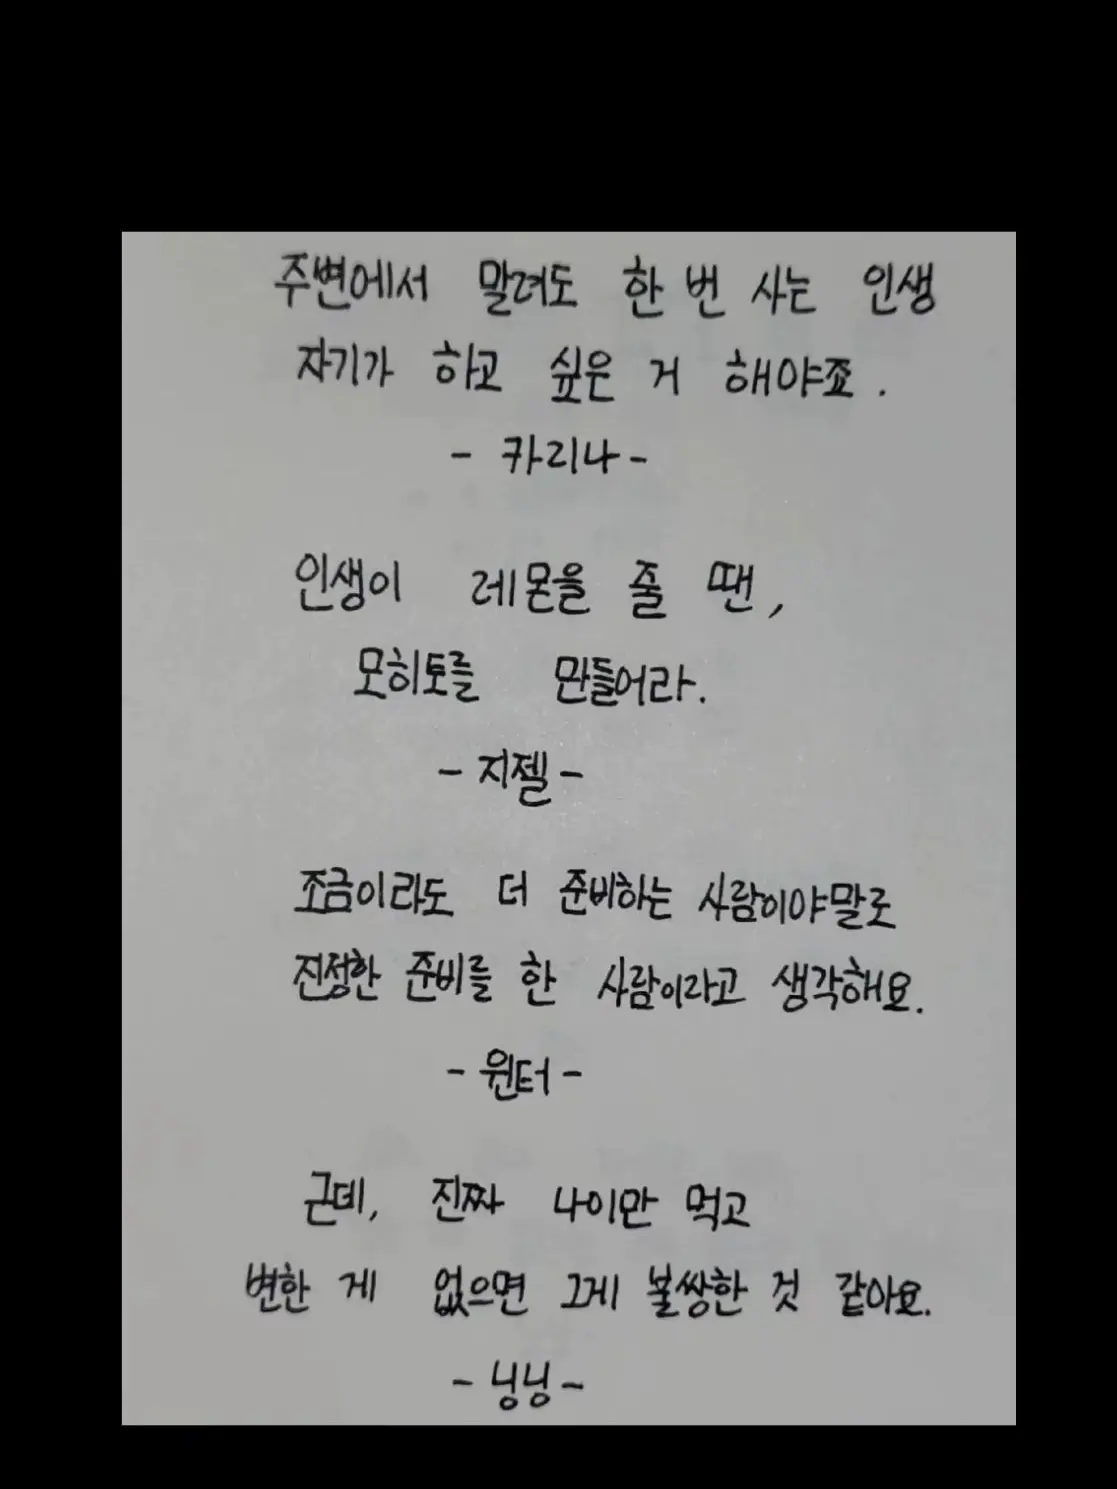 주변에서 말려도 한 번 사는 인생
자기가 하고 싶은 거 해야죠.
- 카리나 -
인생이 레몬을 줄 땐,
모히토를 만들어라.
- 지젤 -
조금이라도 더 준비하는 사람이야말로
진정한 준비를 한 사람이라고 생각해요.
- 윈터 -
근데, 진짜 나이만 먹고
변한 게 없으면 그게 불쌍한 것 같아요.
- 닝닝 -